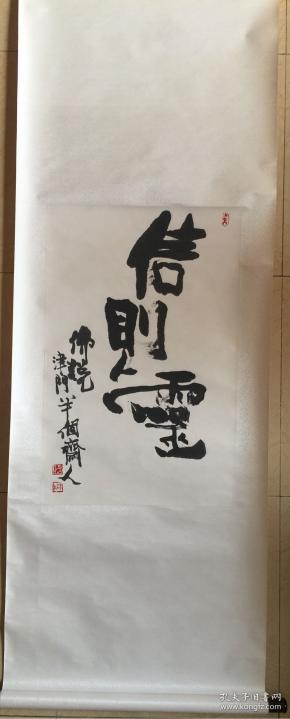 信則靈
佛说
津門半個齋人
孔夫子旧书网
www.kongfz.com